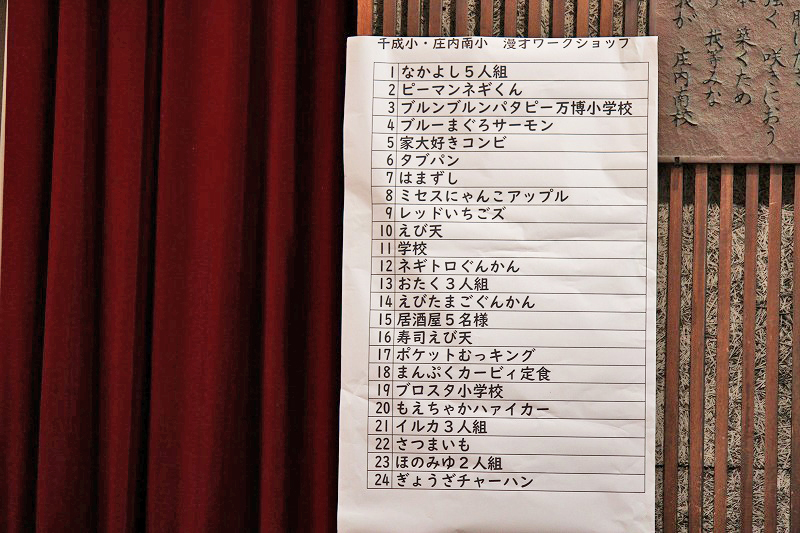 千成小・庄内南小 漫才ワークショップ
1 なかよし５人組
2 ピーマンネギくん
3 ブルンブルンパタピー万博小学校
4 ブルーまぐろサーモン
5 家大好きコンビ
6 タブパン
7 はまずし
8 ミセスにゃんこアップル
9 レッドいちごズ
10 えび天
11 学校
12 ネギトロぐんかん
13 おたく３人組
14 えびたまごぐんかん
15 居酒屋５名様
16 寿司えび天
17 ポケットむっキング
18 まんぷくカービィ定食
19 ブロスタ小学校
20 もえちゃかハァイカー
21 イルカ３人組
22 さつまいも
23 ほのみゆ２人組
24 ぎょうざチャーハン
強く 咲きにおう
築くため
我等みな
我が 庄内南校